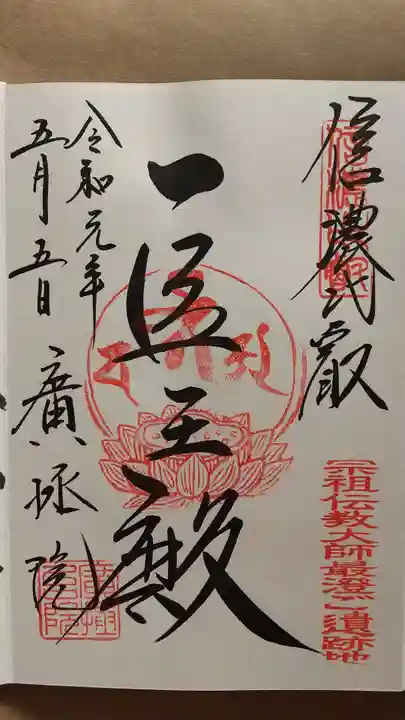 信濃比叡
宗祖伝教大師最澄「」遺跡地
一医王殿
令和元年
五月五日
廣拯院